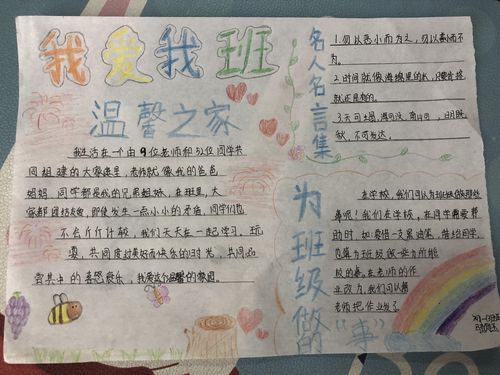 我爱我班
温馨之家
我生活在一个由9位老师和52位同学共
同组建的大家庭里,老师就像我的爸爸
妈妈,同学都是我的兄弟姐妹,在班里,大
家都团结友爱,即使发生一点小小的矛盾,同学们也
不会斤斤计较,我们天天在一起学习,玩
耍,共同度过美好而快乐的时光,共同
享其中的喜怒哀乐,我爱这个温馨的家园。
名人名言集
1.勿以恶小而为之,勿以善小而不
为。
2.时间就像海绵里的水,只要肯挤
就还是有的。
3.天可补,海可填,南山可,日月既
秋,不可复达。
为班级做的“事”
在学校,我们可以为班级做哪些
事呢?我们在学校,在同学需要帮
助时,如:要借一支黑油笔,借给同学,
是为班级做一些力所能
及的事。在老师的作
业改为,我们可以帮
老师把作业发了